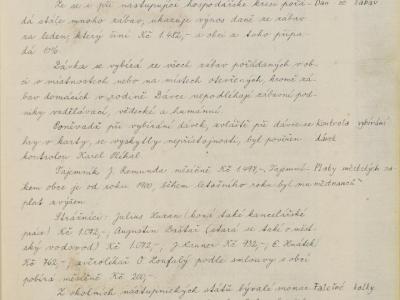 Že se i při nastupující hospodářské krisi pořá- Daň ze zábav
dá stále mnoho zábav, ukazuje výnos daně ze zábav
za leden, který činí Kč 1.482,- a obci z toho připa-
dá 10%.
Dávka se vybírá ze všech zábav pořádaných v ob-
ci v místnostech nebo na místech otevřených, kromě zá-
bav domácích v rodině. Dávce nepodléhají zábavní pod-
niky vzdělávací, vědecké a humánní.
Poněvadž při vybírání dávek, zvláště při dávce ze kontrola vybírání
hry v karty, se vyskytly nepřístojnosti, byl pověřen dávek
kontrolou Karel
Tajemník J. Romunda měsíčně Kč 1.497,-. Tajemní- Platy městských
kem obce je od roku 1900, během letošního roku byl mu zřízenců
plat zvýšen.
Strážníci: Julius Huzan (koná také kancelářské
práce) Kč 1.072,-, Augustin (stará se také o měst-
ský vodovod) Kč 1.072,-, J. Kanner Kč 932,-, E. Hnátek
Kč 762,- zvěrolékař O. Koufalý podle smlouvy s obcí
pobírá měsíčně Kč 200,-.
Z okolních nástupnických států bývalé monar- Falešné kolky